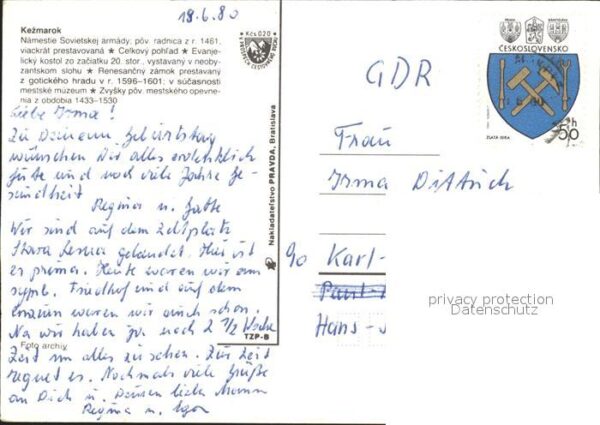 19.6.80
Kežmarok
Námestie Sovietskej armády; pôv. radnica z r. 1461,
viackrát prestavovaná ★ Celkový pohľad ★ Evanje-
lický kostol zo začiatku 20. stor., vystavaný v neoby-
zantskom slohu ★ Renesančný zámok prestavaný
z gotického hradu v r. 1596—1601; v súčasnosti
mestské múzeum ★ Zvyšky pôv. mestského opevne-
nia z obdobia 1433—1530
Kčs 0,20
Liebe Irma!
Zu Deinem Geburtstag
wünschen Dir alles erdenklich
Gute und noch viele Jahre Ge-
sundheit
Regina u. Gatte
Wir sind auf dem Zeltplatz
Stara Lesna gelandet. Hier ist
es prima. Heute waren wir am
symb. Friedhof und auf dem
waren wir auch schon.
Na wir haben ja noch 2 1/2 Woche
Zeit um alles zu sehen. Zur Zeit
regnet es. Nochmals viele Grüße
an Dich u. Deinen lieben
Regina u. Igor
Foto archív
TZP-B
Nakladateľstvo PRAVDA, Bratislava
ČESKOSLOVENSKO
ZLATÁ IDKA
50 h
GDR
Frau
Irma Dittrich
90 Karl-
Paul-
Hans-
privacy protection
Datenschutz